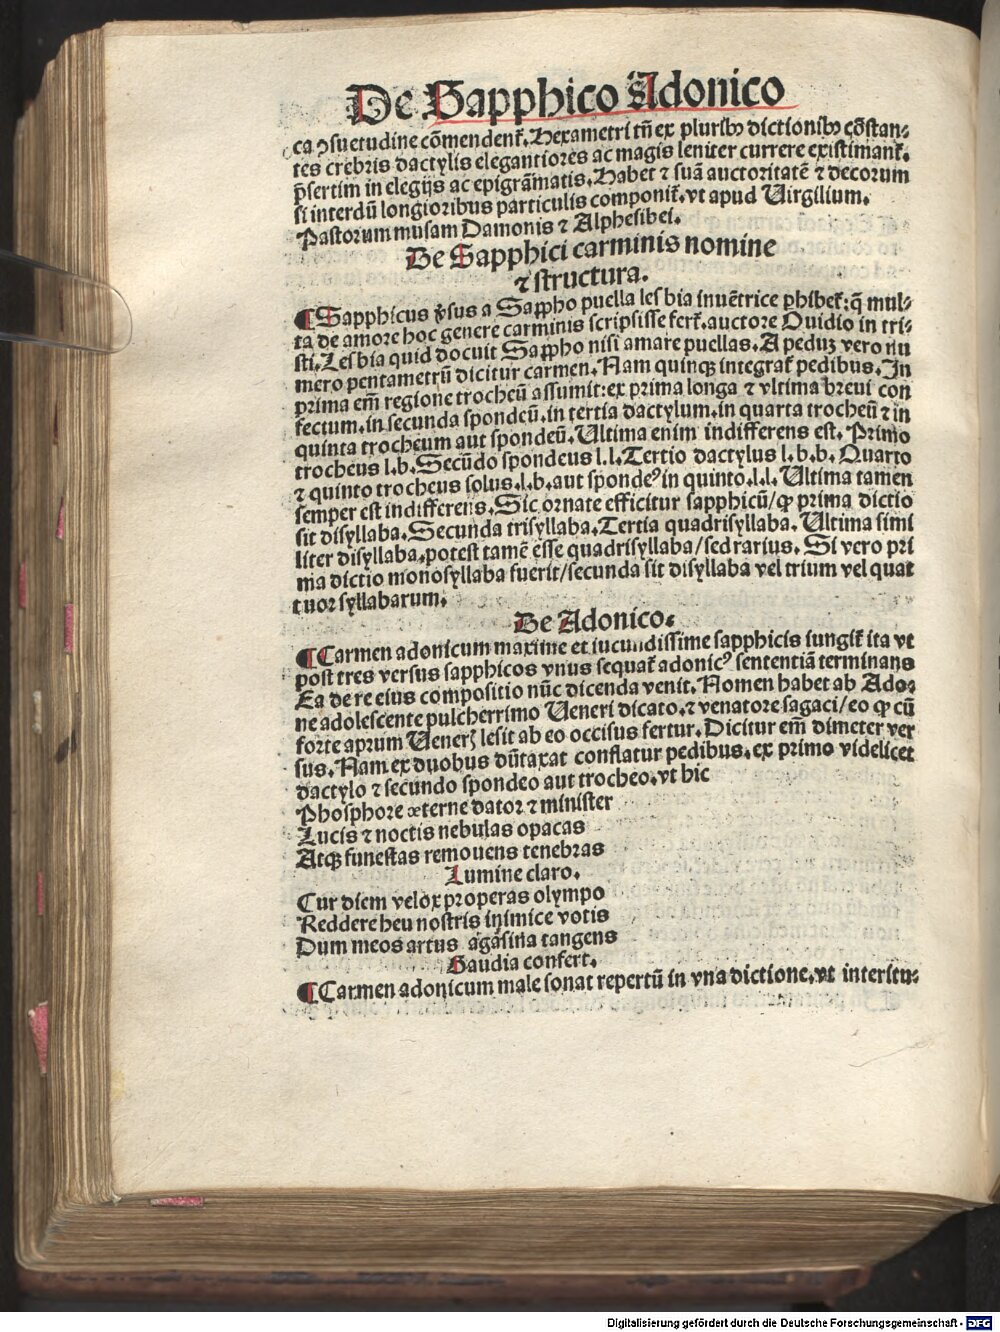 De Sapphico Adonico
ca ↄsuetudine cõmendent᷑. Hexametri tñ ex pluribꝰ dictionibꝰ cõstan⸗
tes crebris dactylis elegantiores ac magis leniter currere existimant᷑.
p̃sertim in elegijs ac epigrãmatis. Habet ⁊ suã auctoritatẽ ⁊ decorum
si interdũ longioribus particulis componit᷑. vt apud Virgilium.
Pastorum musam Damonis ⁊ Alphesibei.
De Sapphici carminis nomine
⁊ structura.
¶ Sapphicus v̓sus a Sappho puella lesbia inuẽtrice phibet᷑: q̃ mul⸗
ta de amore hoc genere carminis scripsisse fert᷑. auctore Ouidio in tri⸗
sti. Lesbia quid docuit Sappho nisi amare puellas. A peduʒ vero nu
mero pentametrũ dicitur carmen. Nam quinqꝫ integrat᷑ pedibus. In
prima em̃ regione trocheũ assumit: ex prima longa ⁊ vltima breui con
fectum. in secunda spondeũ. in tertia dactylum. in quarta trocheũ ⁊ in
quinta trocheum aut spondeũ. Ultima enim indifferens est. Primo
trocheus l.b. Secũdo spondeus l.l. Tertio dactylus l.b.b. Quarto
⁊ quinto trocheus solus. l.b. aut spondeꝰ in quinto. l.l. Ultima tamen
semper est indifferens. Sic ornate efficitur sapphicũ/ ꝙ prima dictio
sit disyllaba. Secunda trisyllaba. Tertia quadrisyllaba. Ultima simi
liter disyllaba. potest tamẽ esse quadrisyllaba/ sed rarius. Si vero pri
ma dictio monosyllaba fuerit/ secunda sit disyllaba vel trium vel quat
tuor syllabarum.
De Adonico.
¶ Carmen adonicum maxime et iucundissime sapphicis iungit᷑ ita vt
post tres versus sapphicos vnus sequat᷑ adonicꝰ sententiã terminans
Ea de re eius compositio nũc dicenda venit. Nomen habet ab Ado⸗
ne adolescente pulcherrimo Veneri dicato. ⁊ venatore sagaci/ eo ꝙ cũ
forte aprum Venerꝭ lesit ab eo occisus fertur. Dicitur em̃ dimeter ver
sus. Nam ex duobus dũtaxat conflatur pedibus. ex primo videlicet
dactylo ⁊ secundo spondeo aut trocheo. vt hic
Phosphore æterne dator ⁊ minister
Lucis ⁊ noctis nebulas opacas
Atqꝫ funestas remouens tenebras
Lumine claro.
Cur diem velox properas olympo
Reddere heu nostris inimice votis
Dum meos artus agasina tangens
Gaudia confert.
¶ Carmen adonicum male sonat repertũ in vna dictione. vt interitu⸗
Digitalisierung gefördert durch die Deutsche Forschungsgemeinschaft - DFG